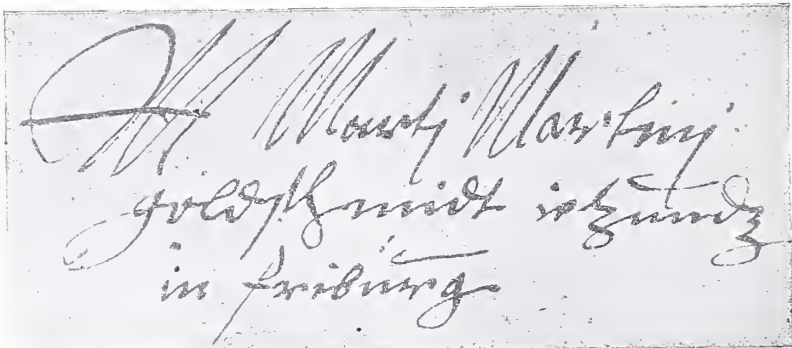 M Martj Martinj
goldschmidt ietzundt
in friburg